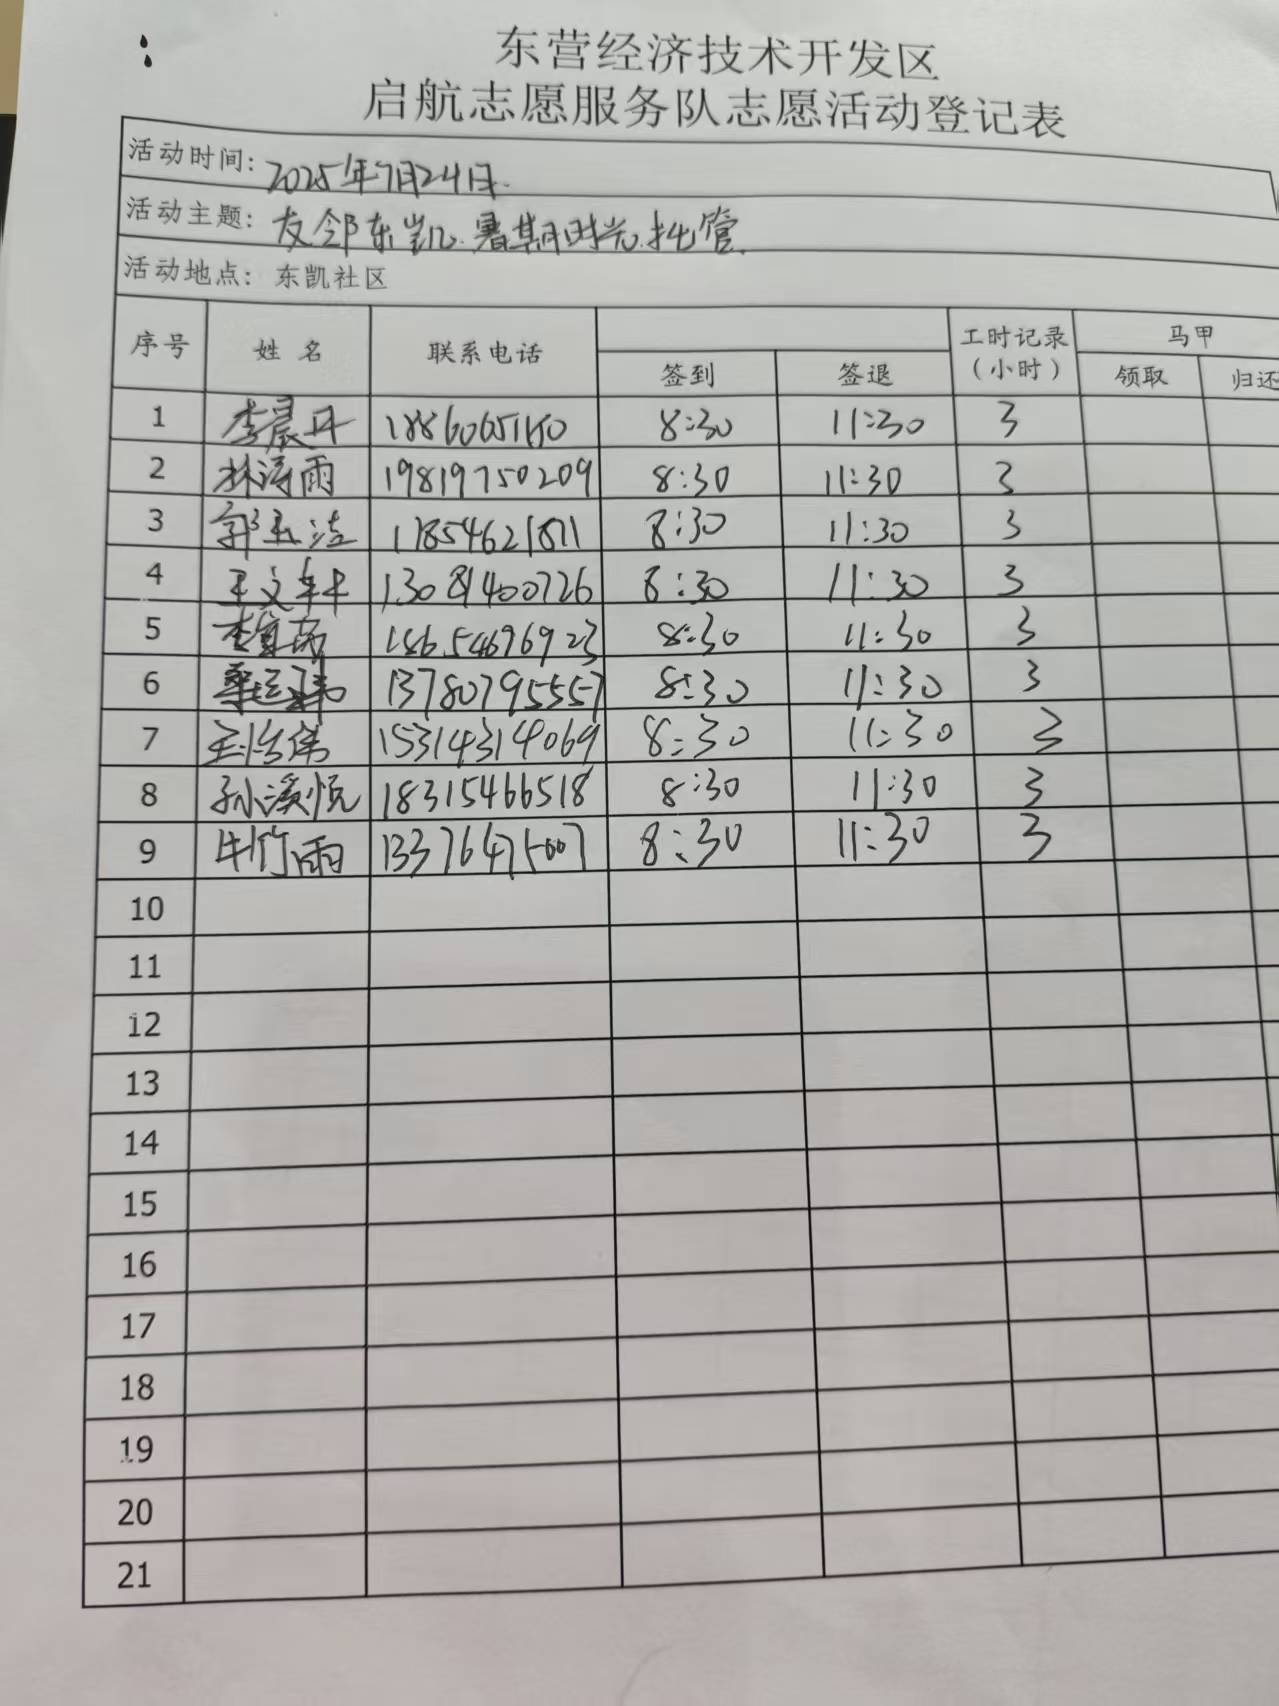 东营经济技术开发区
启航志愿服务队志愿活动登记表
活动时间: 2025年7月24日.
活动主题: 友邻东凯.暑期时光.托管.
活动地点: 东凯社区
序号 姓名 联系电话 签到 签退 工时记录(小时) 马甲 领取 归还
1 李晨丹 8:30 11:30 3
2 林涛雨 19819750209 8:30 11:30 3
3 郭玉洁 17854621811 8:30 11:30 3
4 王文轩 13081400726 8:30 11:30 3
5 15654696923 8:30 11:30 3
6 13780795557 8:30 11:30 3
7 15314314069 8:30 11:30 3
8 孙溪悦 18315466518 8:30 11:30 3
9 牛竹雨 13376475007 8:30 11:30 3
10
11
12
13
14
15
16
17
18
19
20
21